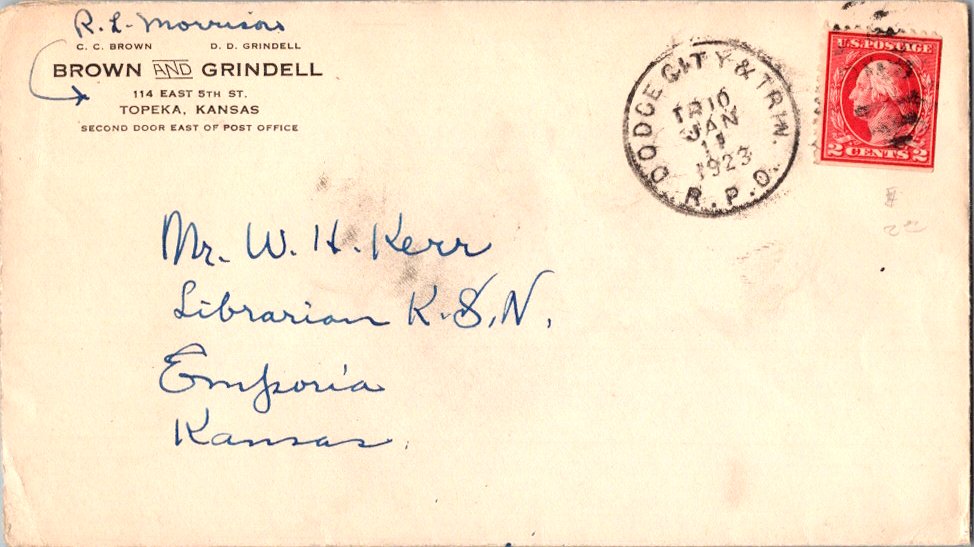 R. L. Morrison
C. C. BROWN D. D. GRINDELL
BROWN AND GRINDELL
114 EAST 5TH ST.
TOPEKA, KANSAS
SECOND DOOR EAST OF POST OFFICE
DODGE CITY & TRIN.
TR 10
JAN
11
1923
R.P.O.
U.S. POSTAGE
2 CENTS 2
Mr. W. H. Kerr
Librarian K.S.N.
Emporia
Kansas.